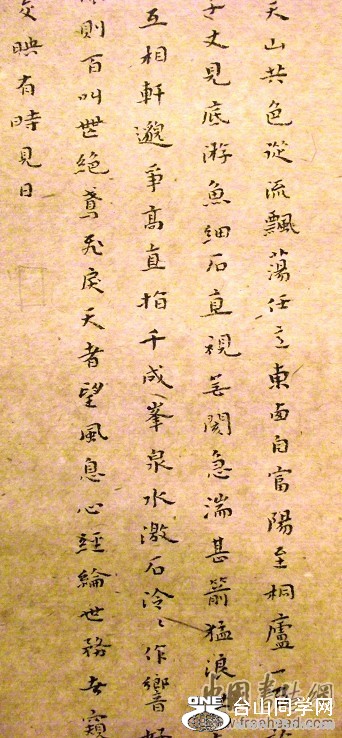 天山共色從流飄蕩任意東西自富陽至桐廬一
千丈見底游魚細石直視無閡急湍甚箭猛浪
互相軒邈爭高直指千成峯泉水激石泠〻作響好
則百叫無絕鳶飛戾天者望風息心經綸世務者窺
交映有時見日
ONE
台山同学网